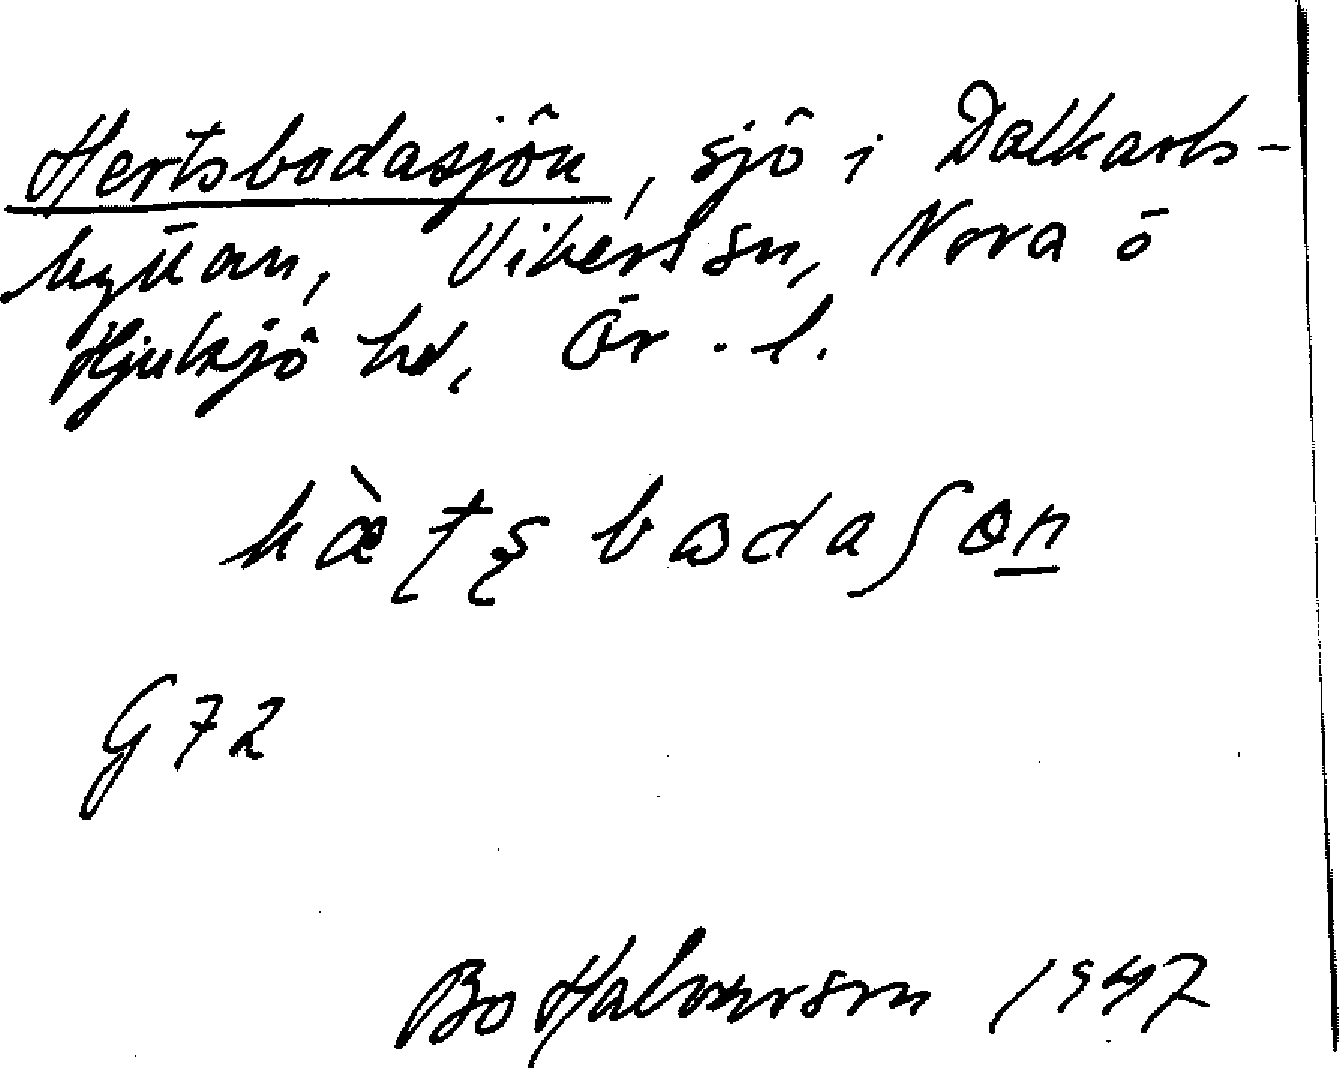 Hertsbodasjön, sjö i Dalkarls-
hyttan, Vikers sn, Nora o
Hjulsjö hd, Ör. l.
hæ̀ʈʂbɷdaʃøn
G 72
Bo Halvarson 1947